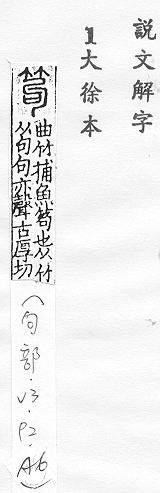 說文解字
1大徐本
笱 曲竹捕魚笱也从竹
从句句亦聲古厚切
(句部.V3.P2.A6)